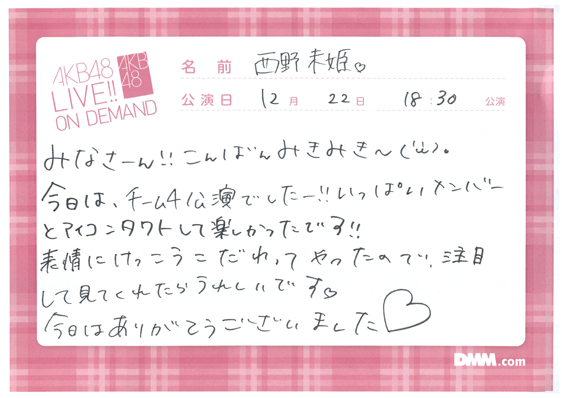 AKB48
LIVE!!
ON DEMAND
AKB
48
名前 西野未姫♡
公演日 12月 22日 18:30 公演
みなさーん!!こんばんみきみき〜(´ω`)。
今日は、チーム4公演でしたー!!いっぱいメンバー
とアイコンタクトして楽しかったです!!
表情にけっこうこだわってやったので、注目
して見てくれたらうれしいです♡
今日はありがとうございました♡
DMM.com